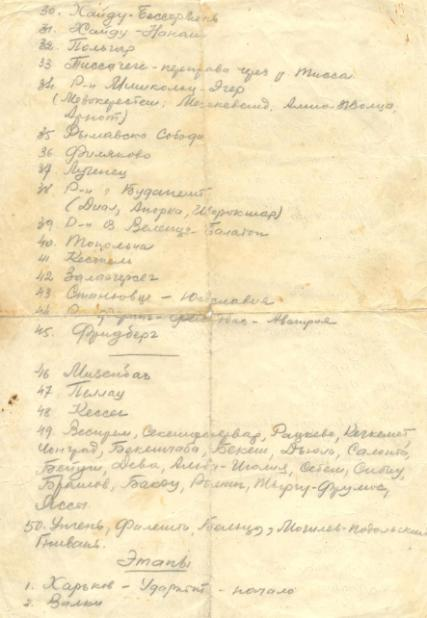 30. Хайду-Бессермень
31. Хайду-Нанаш
32. Польгар
33 Тиссачеге - переправа чрез р. Тисса
34. Р-н Мишкольц-Эгер
(Мезокерестеш, Мезокевешд,
Арнот)
35 Рымавска Собода
36. Филяково
37. Лученец
38. Р-н г. Будапешт
(Диал, Шорокшар)
39. Р-н оз. Веленце-Балатон
40. Топольча
41. Кестель
42. Залаэгерсег
43. Становце - Югославия
44. - Австрия
45. Фридберг
46 Мизенбах
47 Пеллау
48. Кессег
49. Веспрем, Секешфехервар, Рацкеве, Кечкемет,
Чонград, Бекешчаба, Бекеш, Дьюла, Салонта,
Бейуш, Дева, Альба-Юлия, Сибиу,
Брашов, Бакэу, Роман, Тыргу-Фрумос,
Яссы.
50. Унгень, Фалешты, Бельцы, Могилев-Подольский
Гнивань.
Этапы
1. Харьков - - начало
2. Валки